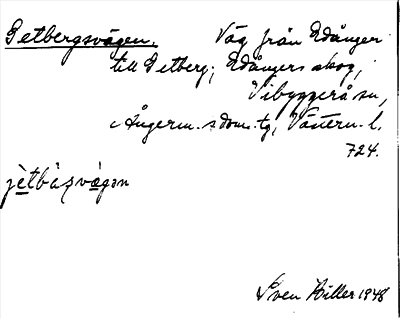 Getbergsvägen. Väg från Edånger
till Getberg; Edångers skog,
Vibyggerå sn,
i Ångerm. s dom.-tg, Västern. l.
724.
jètbàṣvä̀gən
Sven Hiller 1948